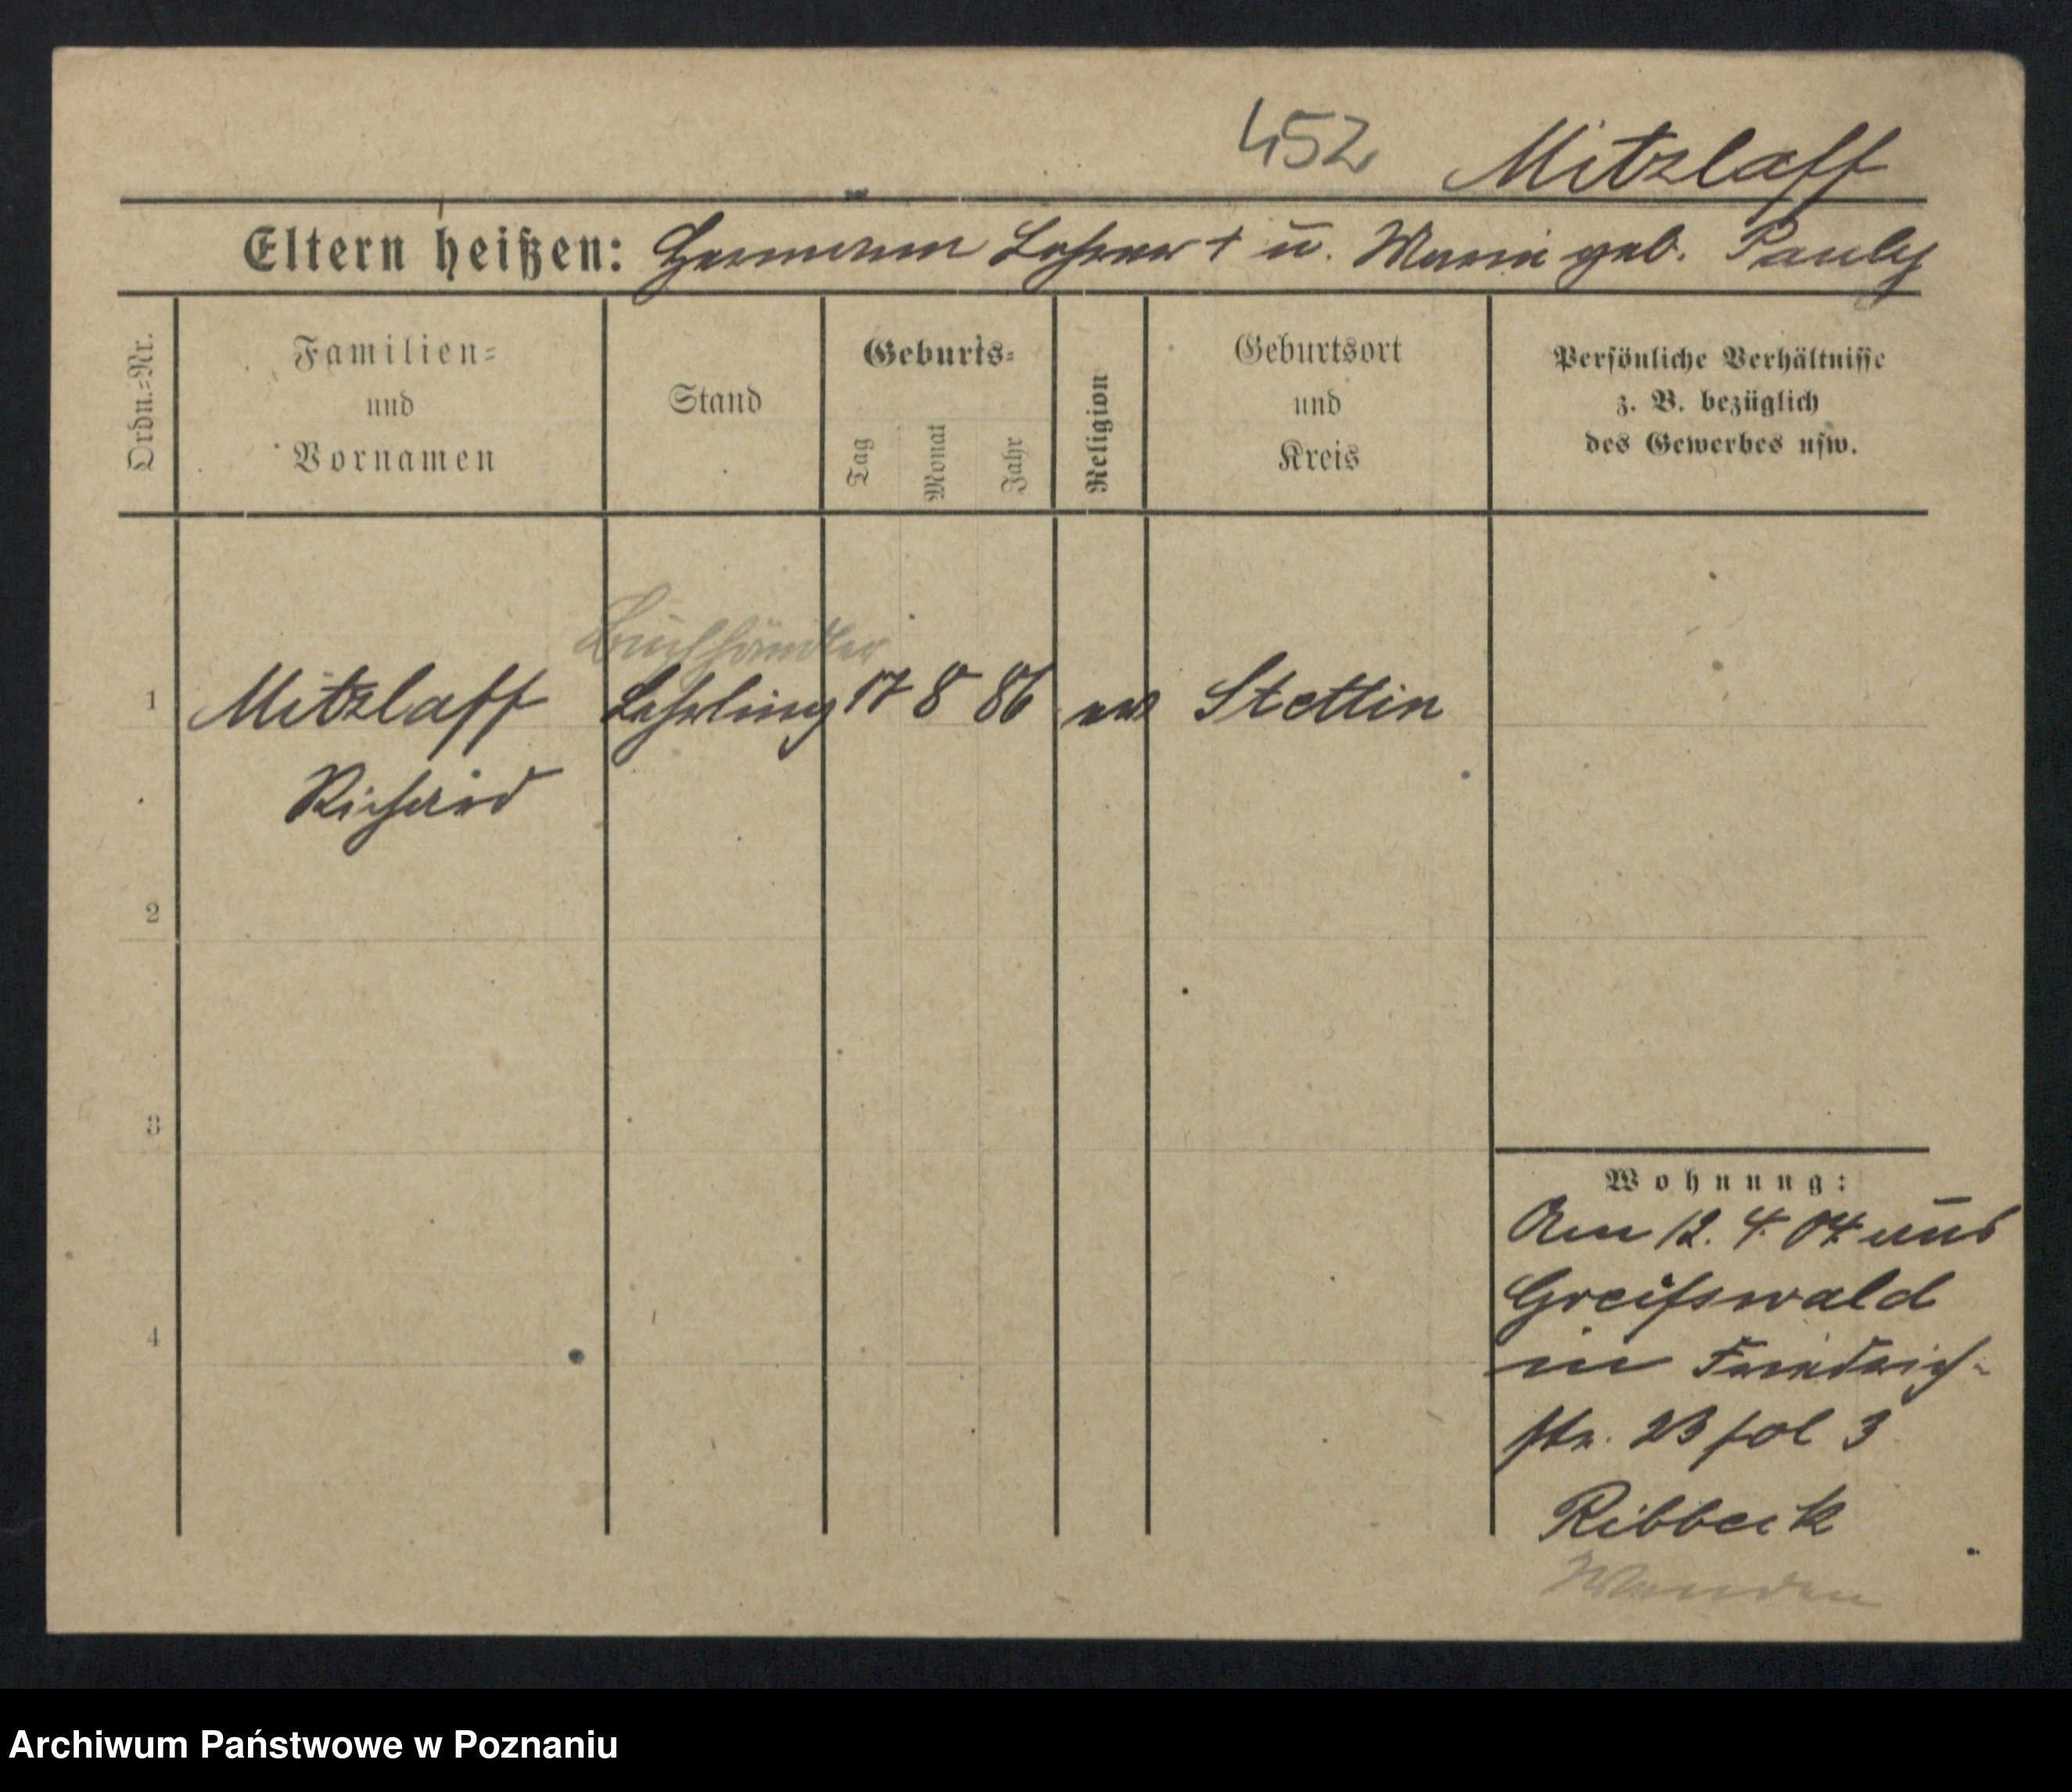 452 Mitzlaff
Eltern heißen: Hermann Lehrer † u. Marie geb. Pauly
Ordn.-Nr.
Familien-
und
Vornamen
Stand
Geburts-
Tag
Monat
Jahr
Religion
Geburtsort
und
Kreis
Persönliche Verhältnisse
z. B. bezüglich
des Gewerbes usw.
Buchhändler
1 Mitzlaff Lehrling 17 8 86 ev Stettin
Richard
2
3
4
Wohnung:
Am 12. 4. 04 aus
Greifswald
in Friedrich-
str. 23 fol 3
Ribbeck
Wenden
Archiwum Państwowe w Poznaniu